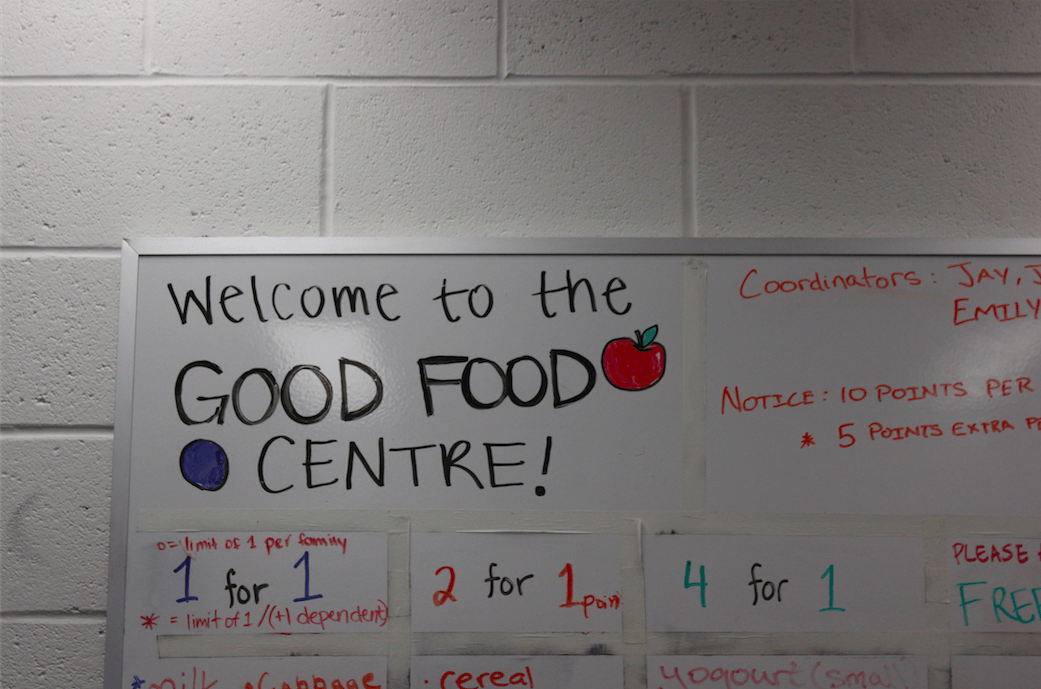 Welcome to the
GOOD FOOD
CENTRE!
Coordinators: JAY, J
EMILY
NOTICE: 10 POINTS PER
* 5 POINTS EXTRA PE
o = limit of 1 per family
1 for 1
* = limit of 1 /(+1 dependent)
2 for 1 point
4 for 1
PLEASE
FREE
*milk •Cabbage
• cereal
yogourt (small)